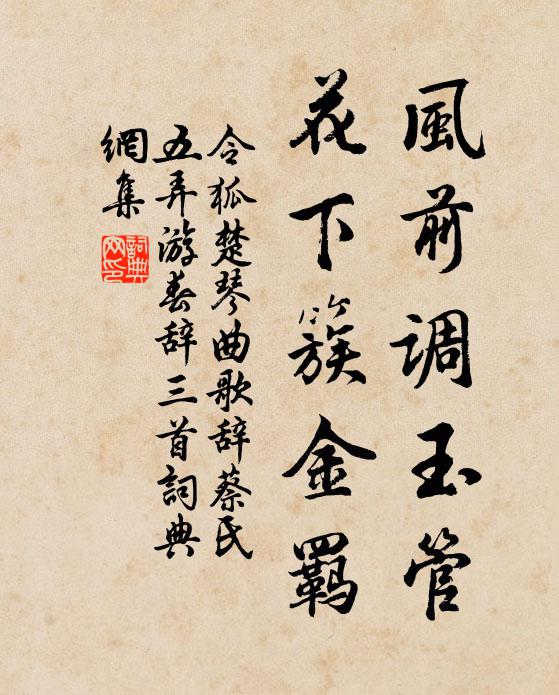 風前調玉管
花下簇金羈
令狐楚琴曲歌辞蔡氏
五弄游春辞三首詞典
網集
詞典
网印